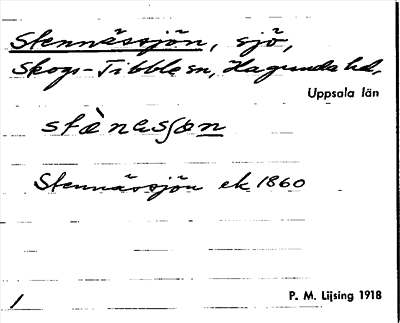 Stennässjön, sjö,
Skogs-Tibble sn, Hagunda hd,
Uppsala län
stènesʃøn
Stennässjön ek 1860
P. M. Lijsing 1918
1